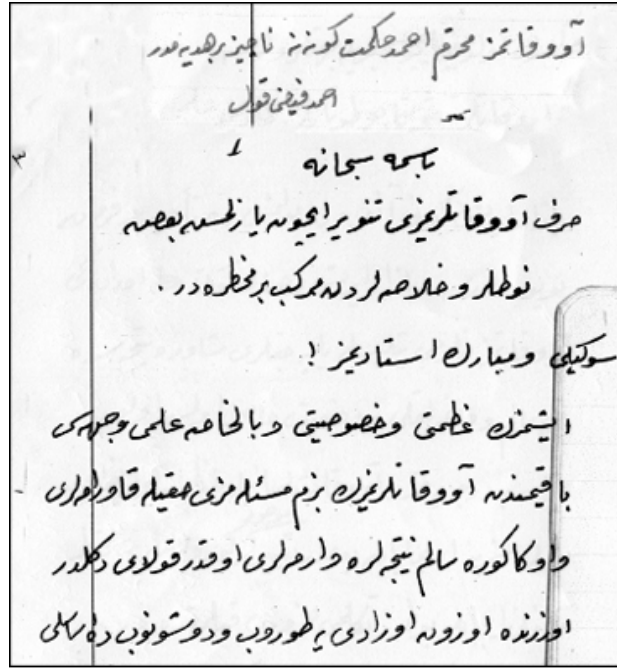 آووقاتمز محرم احمد حكمت كوننه ناچيز بر هديه مدر
احمد فيضى قول
باسمه سبحانه
صرف آووقاتلريمزى تنوير ايچون يازلمش بعض
نوطلر و خلاصه لردن مركب بر مخطره در .
سوكيلى و مبارك استاديمز !
ايشمزك عظمتى و خصوصيتى و بالخاصه علمى وجهه سى
باقيمندن آووقاتلريمزك بزم مسئله مزى حقيله قاورامه لرى
و اوكا كوره سالم نتيجه لره وارمه لرى او قدر قولاى دكلدر
اوزرنده اوزون اوزادى يه طوروب و دوشونوب
٣